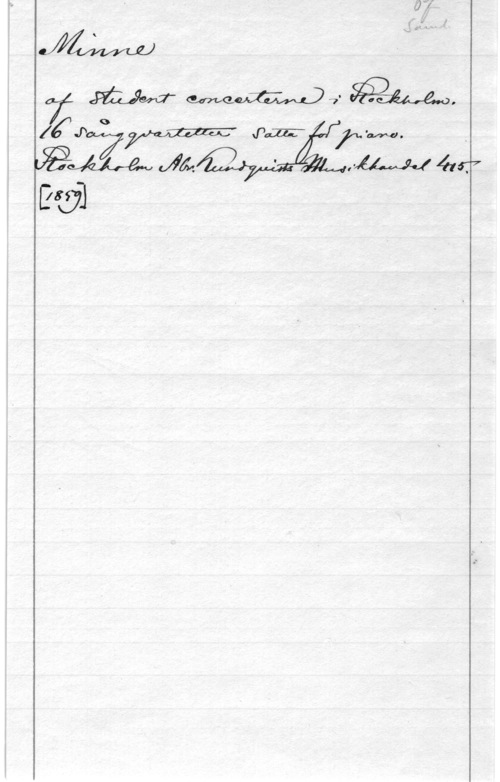 Öf
Saml
Minne
af Studentconcerterne i Stockholm.
16 sångqvartetter satta för piano.
Stockholm Abr. Lundquists Musikhandel 415.
[1859]